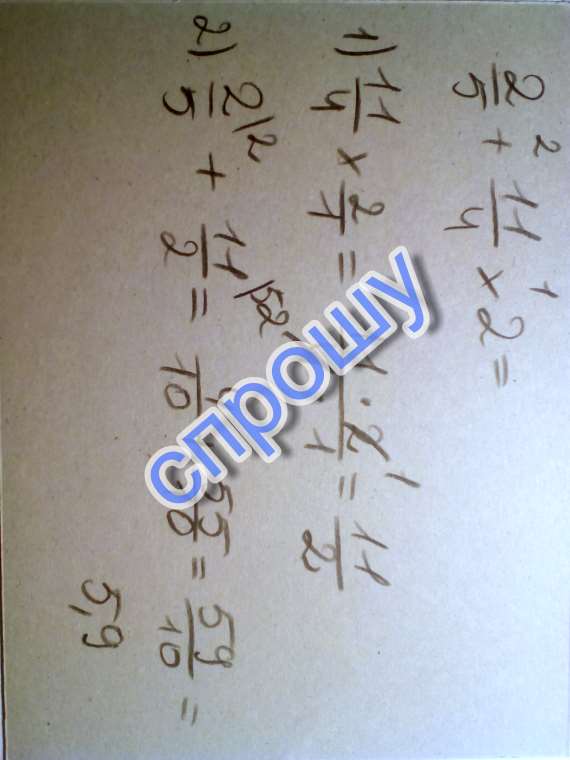 2/5 + 11/4 × 2 =
2 1
1) 11/4 × 2/1 = 11 · 2 / 1 = 11/2
2) 2/5 + 11/2 = /10 55 = 59/10 =
5,9
спрошу